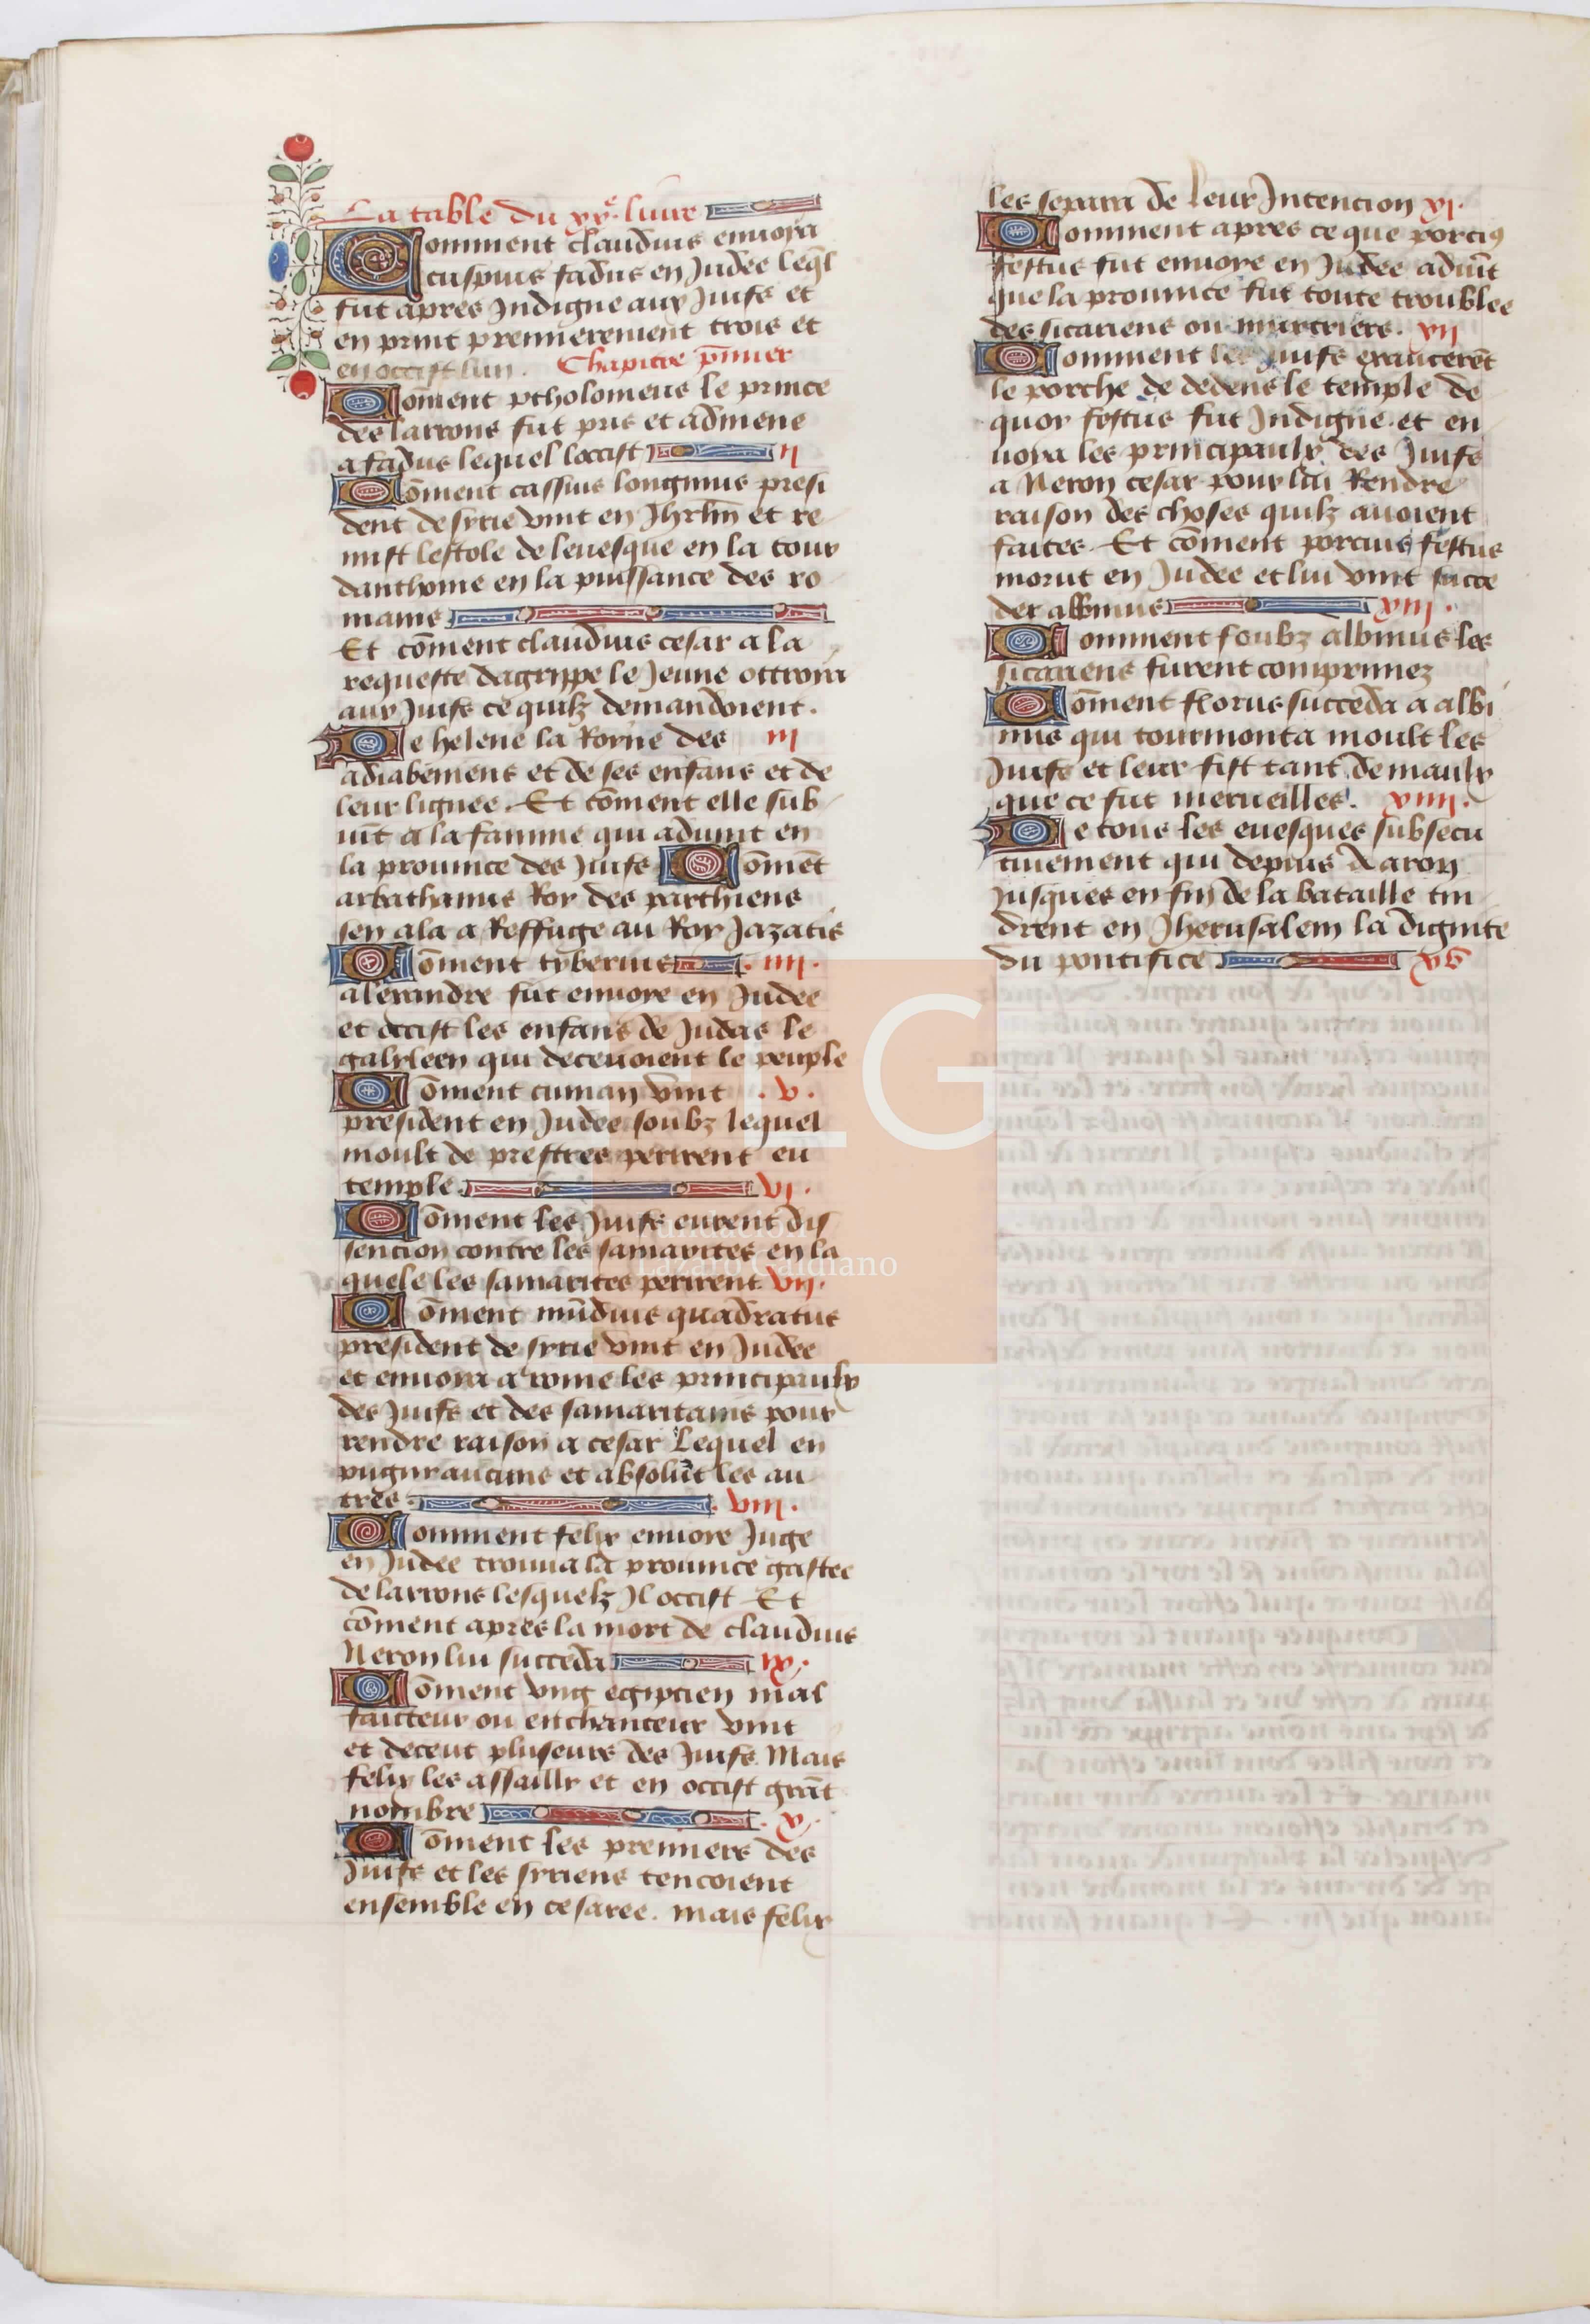 La table du xx.e liure
Comment claudius enuoya
cuspius fadus en Judee leql̄
fut apres Indigne aux Juifs et
en print premierement trois et
en occist lun. Chapitre p̄mier
Com̄ent ptholomeus le prince
des larrons fut pris et admene
a fadus lequel loccist ii
Com̄ent cassius longinus presi
dent de syrie vint en Jhrlm̄ et re
mist lestole de leuesque en la tour
danthoine en la puissance des ro
mains
Et com̄ent claudius cesar a la
requeste dagrippe le Jeune ottroia
aux Juifs ce quilz demandoient.
De helene la Royne des iii
adiabeniens et de ses enfans et de
leur lignee. Et com̄ent elle sub
uīt a la famine qui aduint en
la prouince des Juifs Com̄ēt
arbathanus Roy des parthiens
sen ala a Reffuge au Roy Jazatis
Com̄ent tyberius . iiii .
alexandre fut enuoye en Judee
et occist les enfans de Judas le
galyleen qui deceuoient le peuple
Com̄ent cuman vint . v .
president en Judee soubz lequel
moult de prestres perirent eu
temple . vi .
Com̄ent les Juifs eurent dis
sencion contre les samarites en la
quele les samarites perirent vii .
Com̄ent mūdius quadratus
president de syrie vint en Judee
et enuoya a rome les principaulx
des Juifs et des samaritains pour
rendre raison a cesar Lequel en
pugny aucuns et absolut les au
tres . viii .
Comment felix enuoye Juge
en Judee trouua la prouince gastee
de larrons lesquelz Il occist Et
com̄ent apres la mort de claudius
Neron lui succeda ix .
Com̄ent vng egipcien mal
faicteur ou enchanteur vint
et deceut pluseurs des Juifs Mais
felix les assailly et en occist grāt
nombre . x .
Com̄ent les premiers des
Juifs et les syriens tencoient
ensemble en cesaree. mais felix
les separa de leur Intencion xi .
Comment apres ce que porciꝰ
festus fut enuoye en Judee aduīt
que la prouince fut toute troublee
des sicariens ou murtriers. xii
Comment les Juifs exaucerēt
le porche de dedens le temple de
quoy festus fut Indigne et en
uoya les principaulx des Juifs
a Neron cesar pour lui Rendre
raison des choses quilz auoient
faites. Et com̄ent porcius festus
morut en Judee et lui vint succe
der albinus xiii .
Comment soubz albinus les
sicariens furent comprimez
Com̄ent florus succeda a albi
nus qui tourmenta moult les
Juifs et leur fist tant de maulx
que ce fut merueilles. xiiii .
De tous les euesques subsecu
tiuement qui depuis Aaron
Jusques en fin de la bataille tin
drent en Jherusalem la dignite
du pontifice xv
FLG
Fundación
Lázaro Galdiano